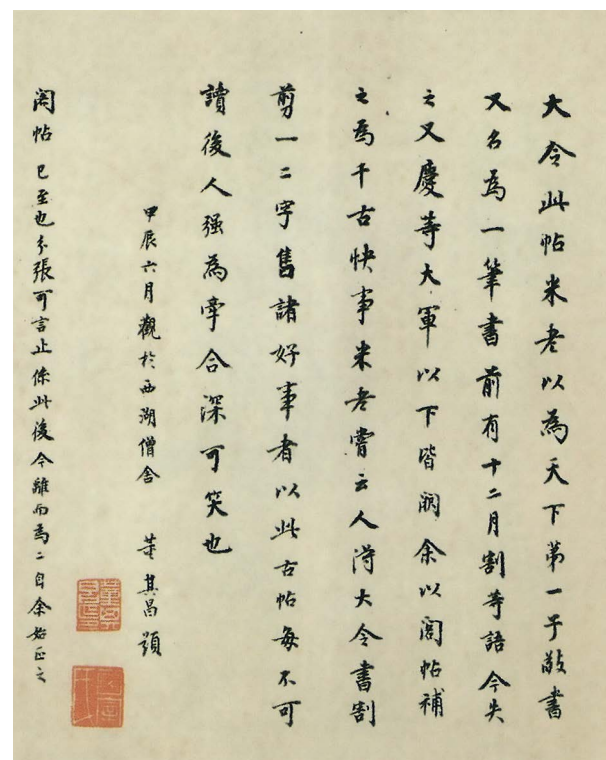 大令此帖米老以為天下第一子敬書
又名為一筆書前有十二月割等語今失
之又慶等大軍以下皆闕余以閣帖補
之為千古快事米老嘗云人得大令書割
剪一二字售諸好事者以此古帖每不可
讀後人强為牽合深可笑也
甲辰六月觀於西湖僧舍 董其昌題
閣帖已至也分張可言止係此後今離而為二自余始正之